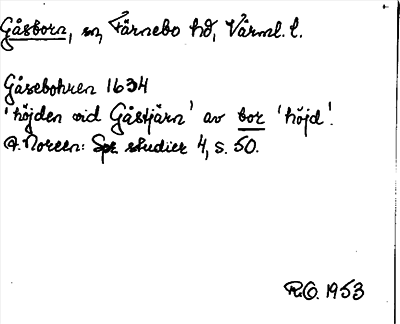 Gåsborn, sn, Färnebo hd, Värml. l.
Gåsebohren 1634
'höjden vid Gåstjärn' av bor 'höjd'.
A. Noreen: Spr. studier 4, s. 50.
R.O. 1953